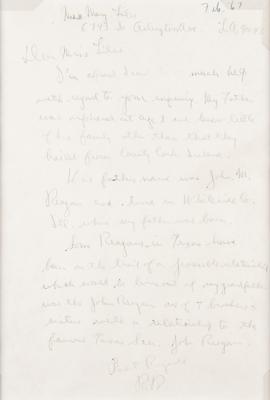 Miss Mary Liles
7.6.67
674 So Arlington Ave. L.A.
Dear Miss Liles
I'm afraid I'm much help
with regard to your inquiry. My Father
was orphaned at age 6 and knew little
of his family other than that they
hailed from County Cork Ireland.
His father's name was John M.
Reagan and lived in Whiteside Co.
Ill. where my father was born.
Some Reagans in Texas have
been on the trail of a possible relationship
which would be because if my grandfather
was the John Reagan one of 7 brothers &
sisters
a relationship to the
famous Texas Sen. John Reagan.
Best Regards
RR